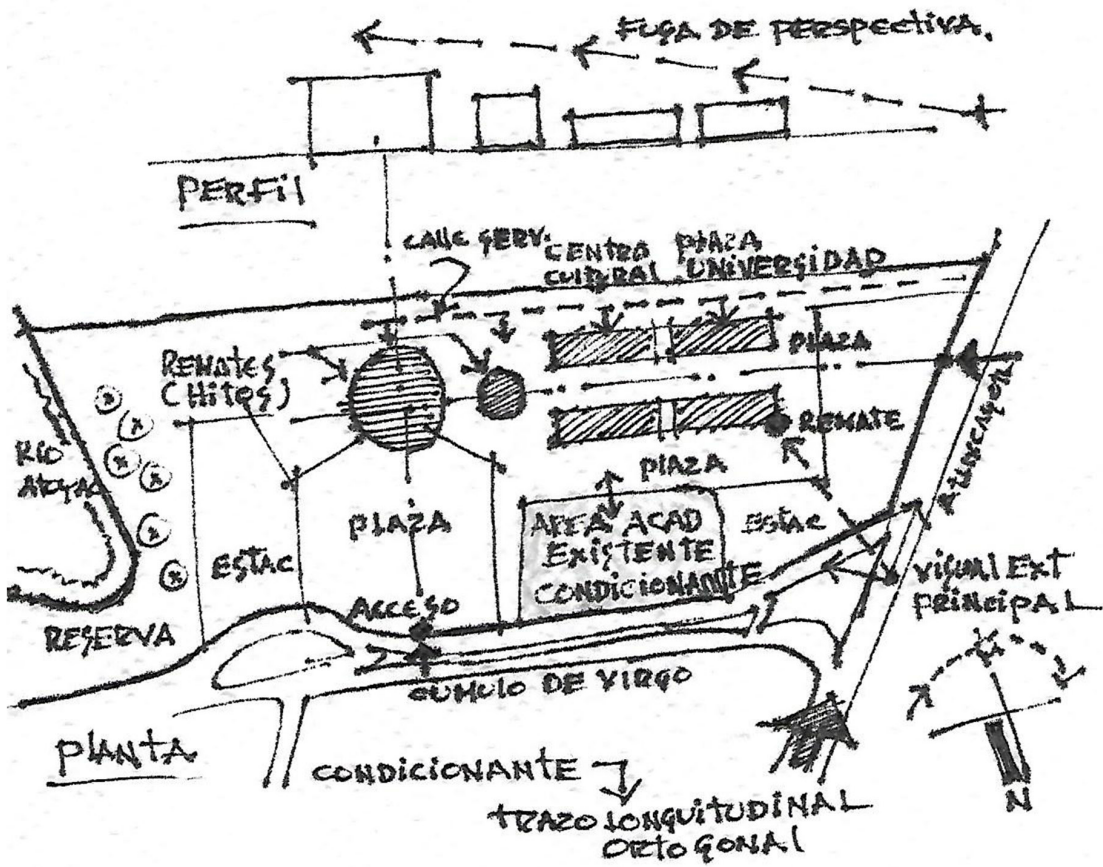 FUGA DE PERSPECTIVA.
PERFIL
CALLE SERV.
CENTRO
CULTURAL
PLAZA
UNIVERSIDAD
REMATES
(HITOS)
PLAZA
REMATE
RÍO
ATOYAC
PLAZA
PLAZA
AREA ACAD
EXISTENTE
CONDICIONANTE
ESTAC
ESTAC
VISUAL EXT
PRINCIPAL
ACCESO
RESERVA
CUMULO DE VIRGO
PLANTA
CONDICIONANTE
TRAZO LONGUITUDINAL
ORTOGONAL
N